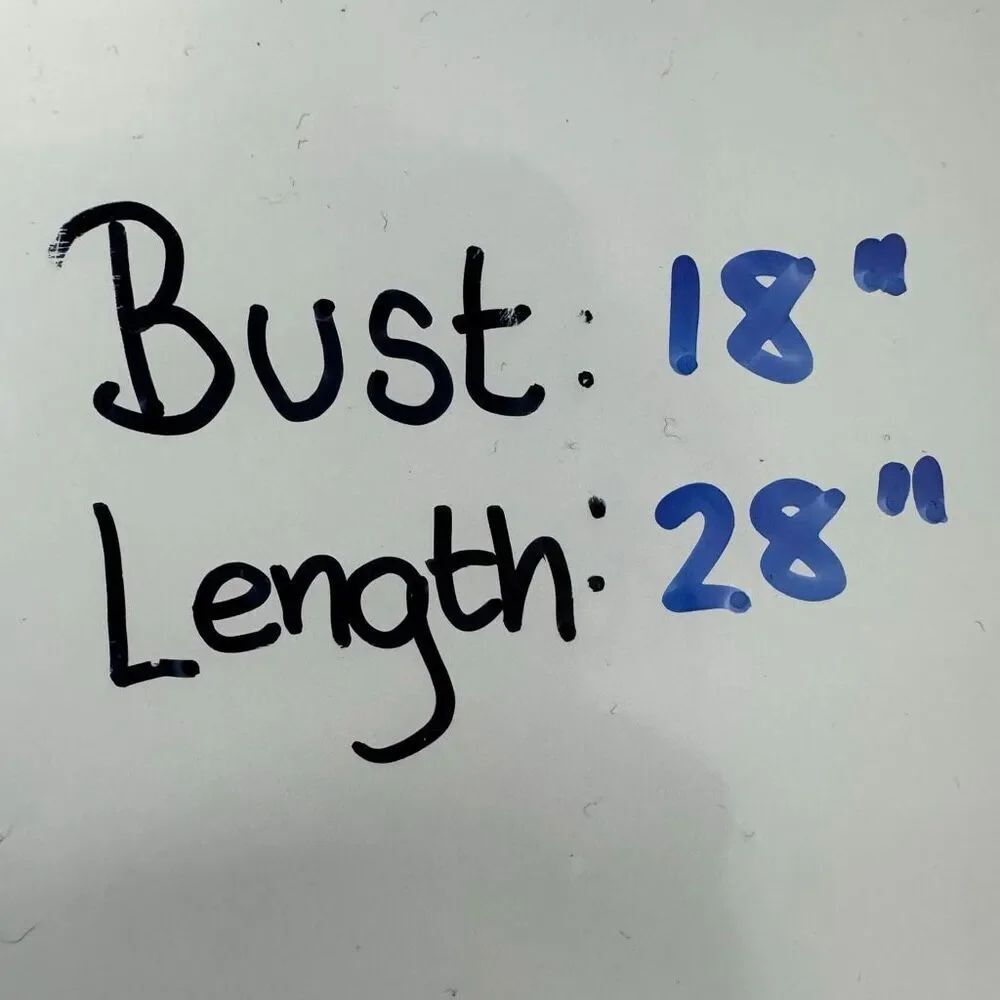 Bust: 18"
Length: 28"